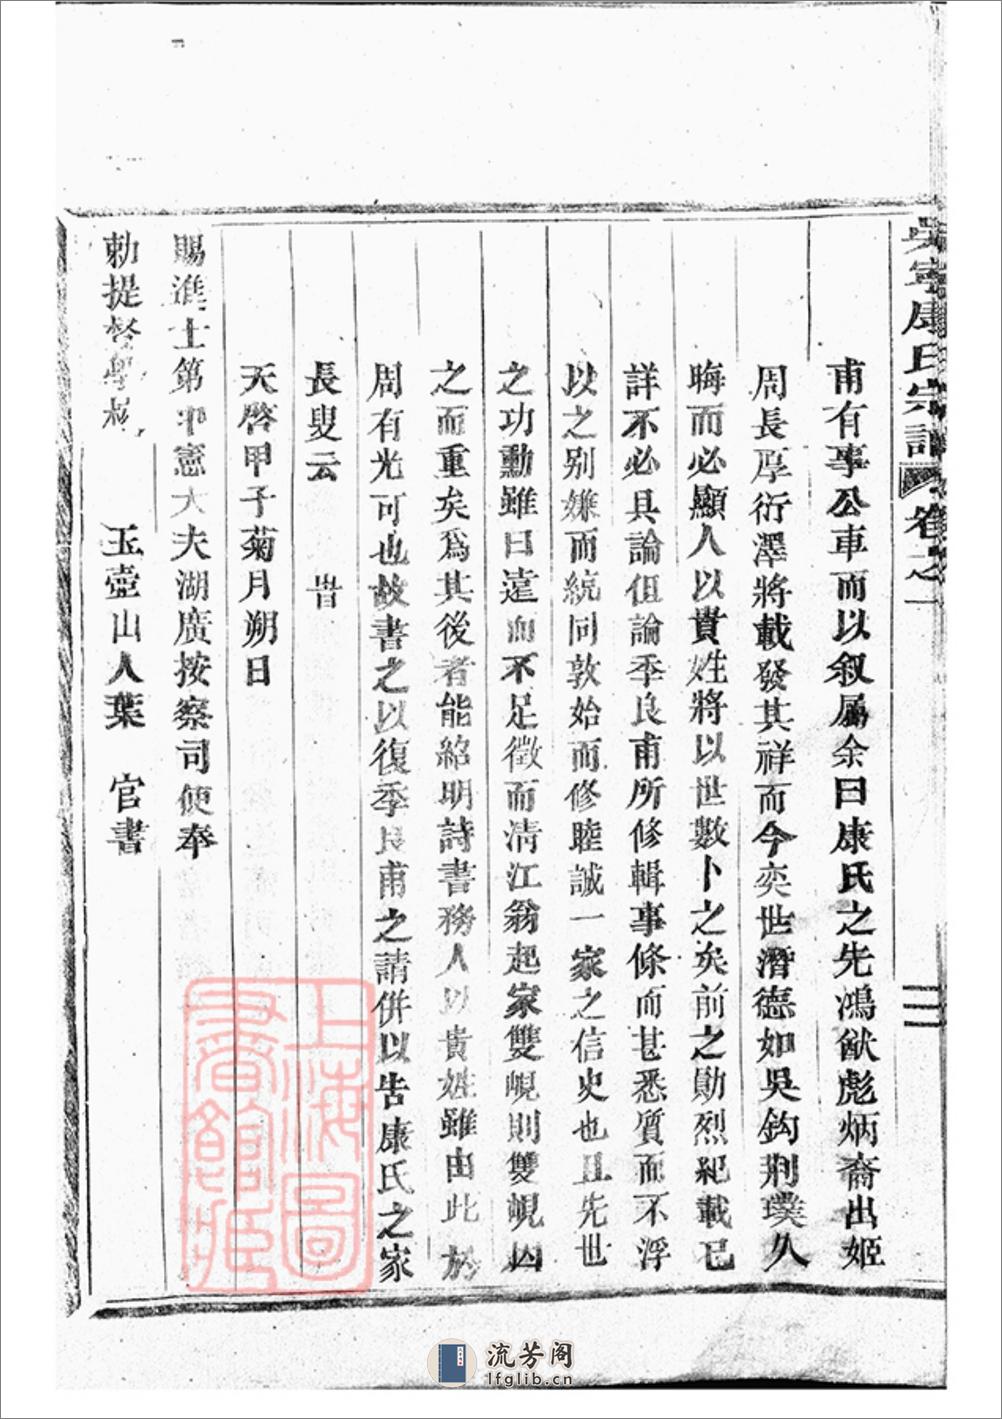 吳寧康氏宗譜 卷之一
二
甫有事公車而以叙屬余曰康氏之先鴻猷彪炳裔出姬
周長厚衍澤將載發其祥而今奕世潛德如吳鈎荆璞久
晦而必顯人以貴姓將以世數卜之矣前之勛烈紀載已
詳不必具論但論季良甫所修輯事條而甚悉質而不浮
以之别嫌而統同敦始而修睦誠一家之信史也且先世
之功勳雖曰遠而不足徵而清江翁起家雙峴則雙峴因
之而重矣爲其後者能紹明詩書務人以貴姓雖由此於
周有光可也故書之以復季良甫之請併以告康氏之家
長叟云 旹
天啓甲子菊月朔日
賜進士第中憲大夫湖廣按察司使奉
勅提督學校 玉壺山人葉 官書
上海圖書館藏
流芳阁
lfglib.cn